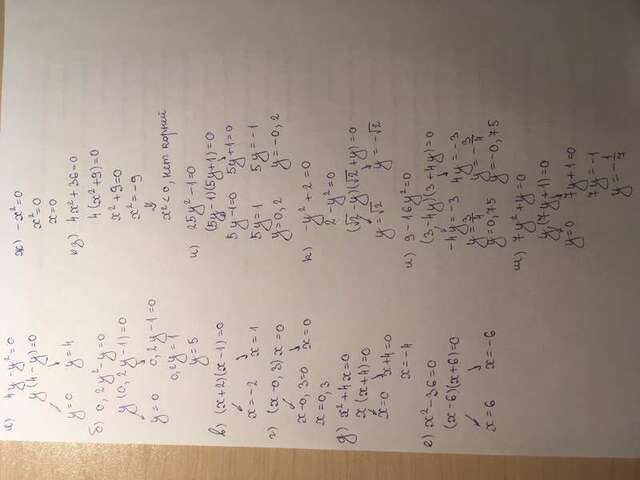 а) 4y - y² = 0
y(4 - y) = 0
y = 0 y = 4
б) 0,2y² - y = 0
y(0,2y - 1) = 0
y = 0 0,2y - 1 = 0
0,2y = 1
y = 5
в) (x+2)(x-1) = 0
x = -2 x = 1
г) (x - 0,3)x = 0
x - 0,3 = 0 x = 0
x = 0,3
д) x² + 4x = 0
x(x+4) = 0
x = 0 x+4 = 0
x = -4
е) x² - 36 = 0
(x-6)(x+6) = 0
x = 6 x = -6
ж) -x² = 0
x² = 0
x = 0
з) 4x² + 36 = 0
4(x² + 9) = 0
x² + 9 = 0
x² = -9
⇓
x² < 0, нет корней
и) 25y² - 1 = 0
(5y-1)(5y+1) = 0
5y-1 = 0 5y+1 = 0
5y = 1 5y = -1
y = 0,2 y = -0,2
к) -y² + 2 = 0
2 - y² = 0
(√2 - y)(√2 + y) = 0
y = √2 y = -√2
л) 9 - 16y² = 0
(3 - 4y)(3 + 4y) = 0
-4y = -3 4y = -3
y = 3/4 y = -3/4
y = 0,75 y = -0,75
м) 7y² + y = 0
y(7y+1) = 0
y = 0 7y+1 = 0
7y = -1
y = -1/7